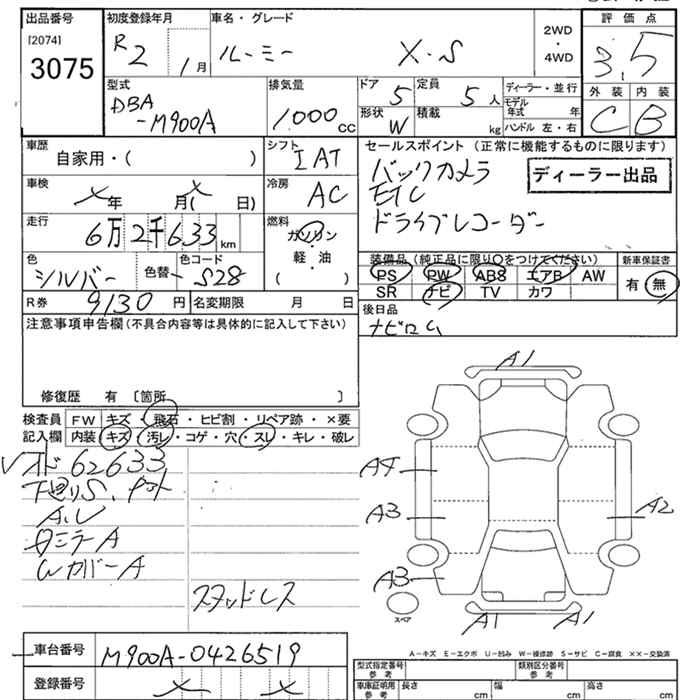 出品番号
[2074]
3075
初度登録年月
R2
1月
車名・グレード
ルーミー X・S
2WD
・
4WD
評価点
3.5
外装 内装
C B
型式
DBA
-M900A
排気量
1000 CC
ドア 5
定員 5人
形状 W
積載 kg
ディーラー・並行
モデル年式 年
ハンドル 左・右
車歴
自家用・( )
シフト IAT
車検
メ年 月(メ 日)
冷房 AC
走行
6万2千633 km
燃料
ガソリン
・
軽・油
( )
色 シルバー
色替
色コード S28
R券 9130 円
名変期限 月 日
セールスポイント (正常に機能するものに限ります)
バックカメラ
ETC
ドライブレコーダー
ディーラー出品
装備品 (純正品に限り○をつけてください)
PS PW ABS エアB AW
SR ナビ TV カワ
新車保証書
有・無
後日品
ナビロム
注意事項申告欄 (不具合内容等は具体的に記入して下さい)
修復歴 有 〔箇所 〕
検査員記入欄
FW キズ・飛石・ヒビ割・リペア跡・×要
内装 キズ・汚レ・コゲ・穴・スレ・キレ・破レ
62633
下廻りS、
A.U
ミラーA
WカバーA
スタッドレス
A1
A4
A3
A3
A2
A1
A1
スペア
車台番号 M900A-0426519
登録番号 メ メ
A-キズ E-エクボ U-凹み W-補修跡 S-サビ C-腐食 ××-交換済
型式指定番号 参考
類別区分番号 参考
車庫証明用 参考 長さ cm 幅 cm 高さ cm